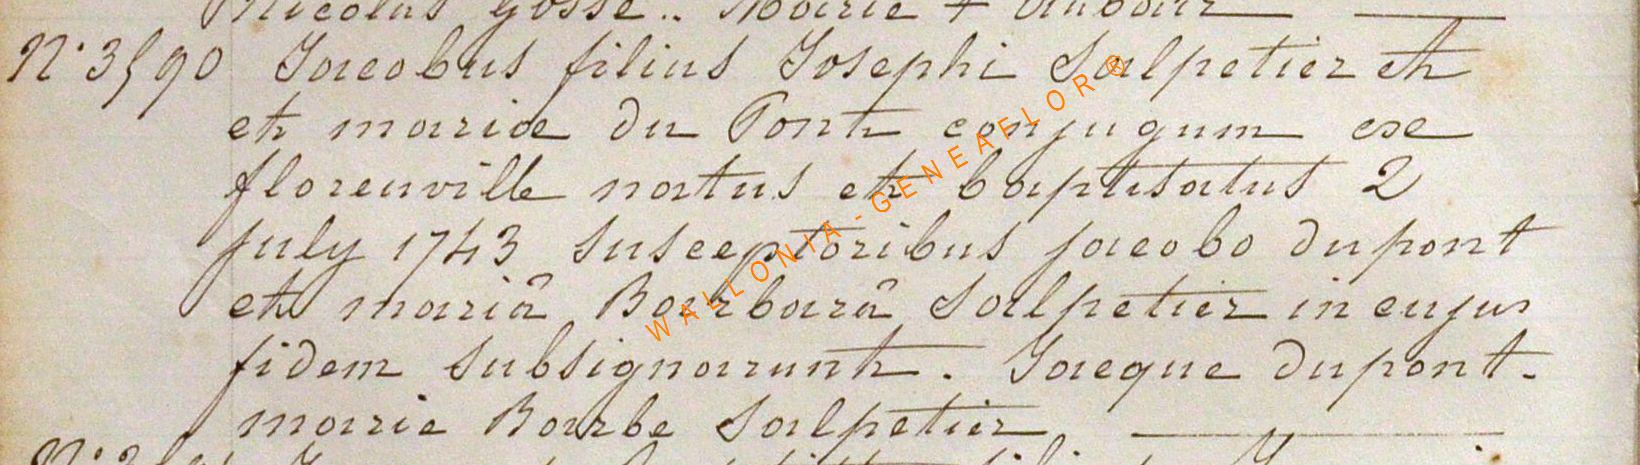 Nicolas Gosse.. Marie +
N° 3590 Jacobus filius Josephi Salpetier et
et mariae du Pont conjugum ex
florenville natus et baptisatus 2
july 1743 susceptoribus jacobo dupont
et mariâ Barbarâ Salpetier in cujus
fidem subsignarunt. Jacque dupont.
marie Barbe Salpetier
WALLONIA - GENEAFLOR®